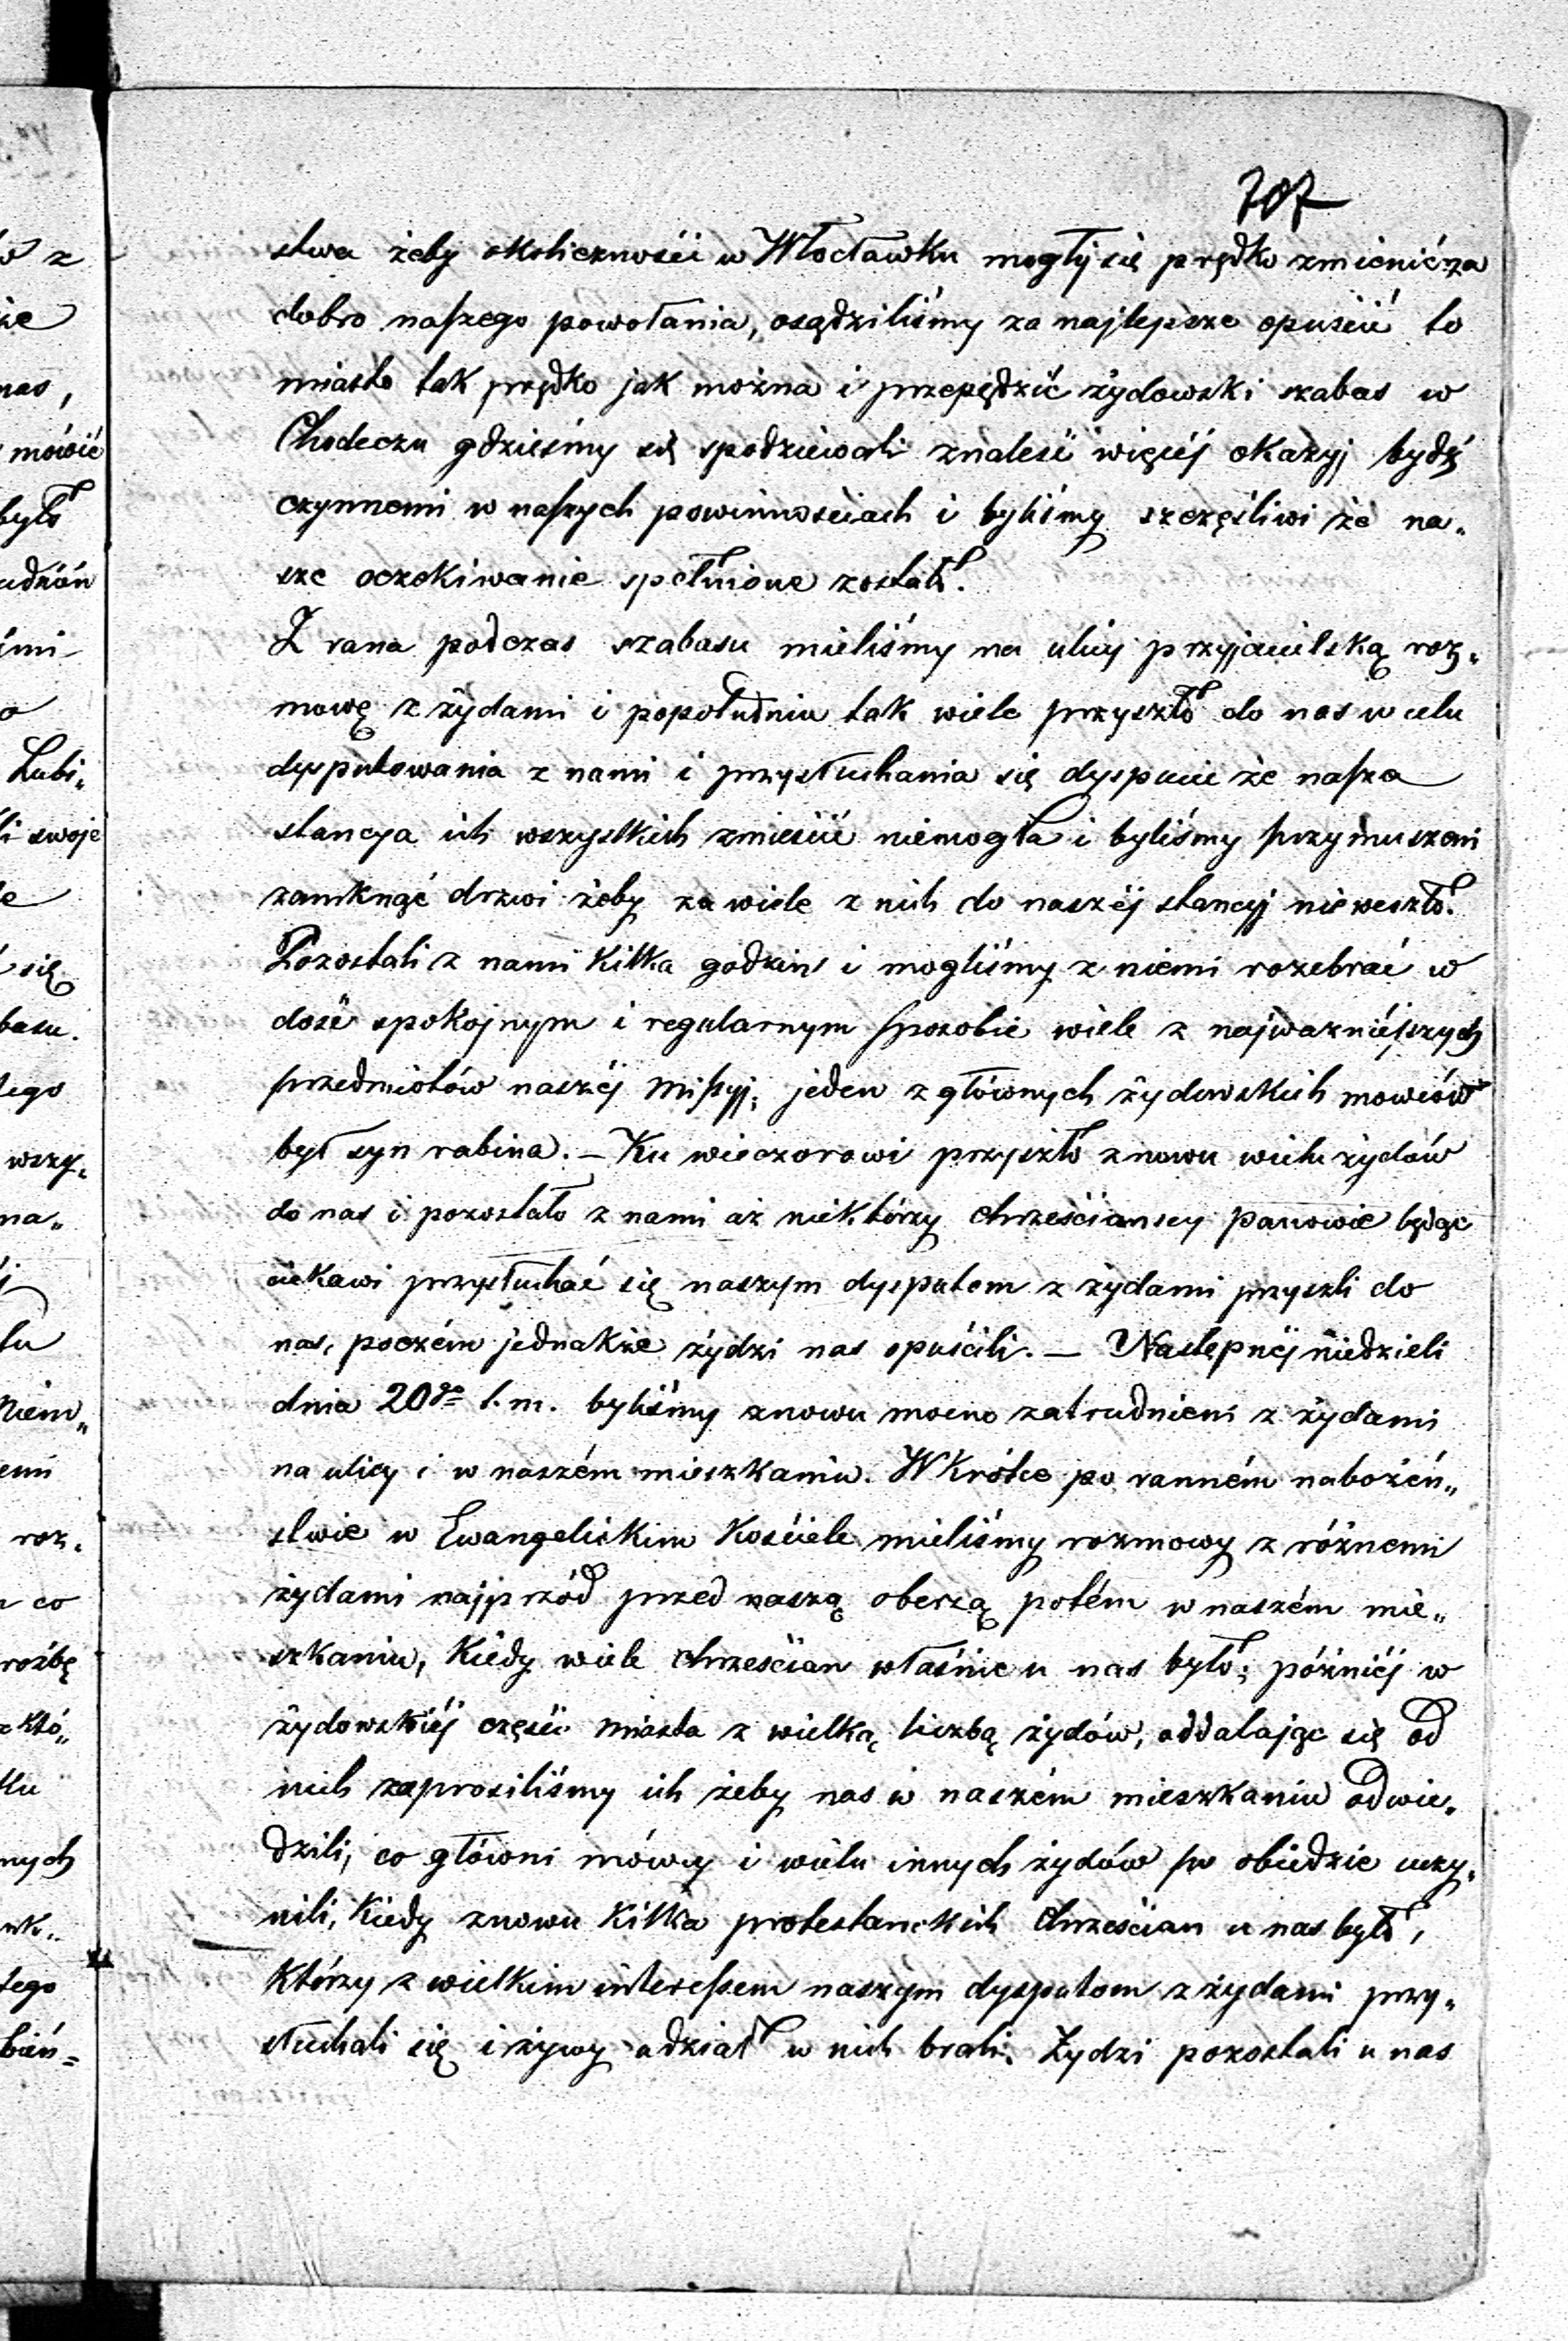 707
stwa żeby okoliczności w Włocławku mogły się prędko zmienić za
dobro naszego powołania, osądziliśmy za najlepsze opuścić to
miasto tak prędko jak można i przepędzić żydowski szabas w
Chodeczu gdzieśmy się spodziewali znaleść więcéj okazyj bydź
czynnemi w naszych powinnościach i byliśmy szczęśliwi że na„
sze oczekiwanie spełnione zostało.
Z rana podczas szabasu mieliśmy na ulicy przyjacielską roz„
mowę z żydami i popołudniu tak wiele przyszło do nas w celu
dysputowania z nami i przysłuchania się dyspucie że nasza
stancya ich wszystkich zmieścić niemogła i byliśmy przymuszeni
zamknąć drzwi żeby za wiele z nich do naszéj stancyj nieweszło.
Pozostali z nami kilka godzin i mogliśmy z niemi rozebrać w
dość spokojnym i regularnym sposobie wiele z najważniéjszych
przedmiotów naszéj missyj; jeden z głównych żydowskich mowców
był syn rabina. – Ku wieczorowi przyszło znowu wielu żydów
do nas i pozostało z nami aż niektórzy chrześciansey panowie będąc
ciekawi przysłuchać się naszym dysputom z żydami przyszli do
nas, poczém jednakże żydzi nas opuścili. – Następnéj niedzieli
dnia 20go t. m. byliśmy znowu mocno zatrudnieni z żydami
na ulicy i w naszém mieszkaniu. Wkrótce po ranném nabożeń„
stwie w Ewangelickim Kościele mieliśmy rozmowy z różnemi
żydami najprzód przed naszą oberżą potém w naszém mie„
szkaniu, kiedy wiele chrześcian właśnie u nas było; późniéj w
żydowskiéj części miasta z wielką liczbą żydów, oddalając się od
nich zaprosiliśmy ich żeby nas w naszém mieszkaniu odwie„
dzili, co główni mówcy i wielu innych żydów po obiedzie uczy„
nili, kiedy znowu kilka protestanckich chrześcian u nas było,
którzy z wielkim interessem naszym dysputom z żydami przy„
słuchali się i żywy udział w nich brali. Żydzi pozostali u nas